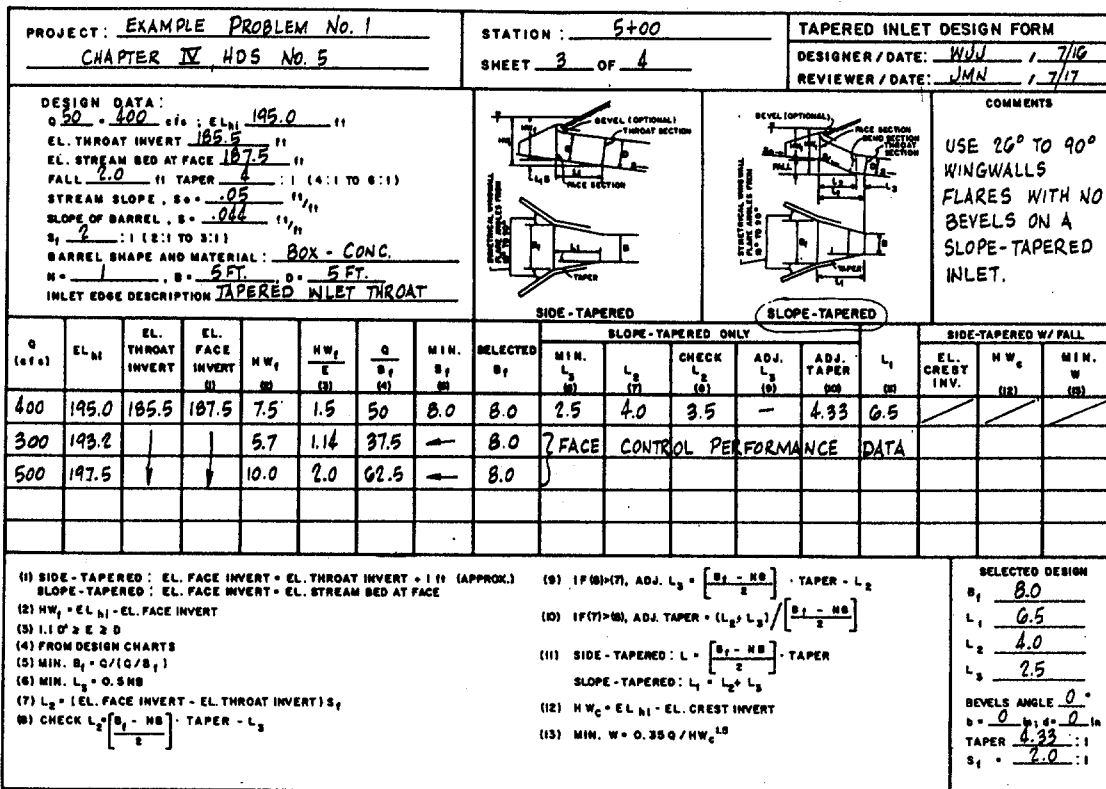 PROJECT: EXAMPLE PROBLEM No. 1
CHAPTER IV, HDS No. 5
STATION: 5+00
SHEET 3 OF 4
TAPERED INLET DESIGN FORM
DESIGNER / DATE: WJJ / 7/16
REVIEWER / DATE: JMN / 7/17
DESIGN DATA:
Q 50 = 400 cfs ; EL hi 195.0 ft
EL. THROAT INVERT 185.5 ft
EL. STREAM BED AT FACE 187.5 ft
FALL 2.0 ft TAPER 4 :1 (4:1 TO 6:1)
STREAM SLOPE, So = .05 ft/ft
SLOPE OF BARREL, S = .044 ft/ft
Sf 2 :1 (2:1 TO 3:1)
BARREL SHAPE AND MATERIAL: BOX - CONC.
N = 1, B = 5 FT. D = 5 FT.
INLET EDGE DESCRIPTION TAPERED INLET THROAT
BEVEL (OPTIONAL)
THROAT SECTION
FACE SECTION
SYMETRICAL WINGWALL
FLARE ANGLES FROM
TAPER
SIDE-TAPERED
BEVEL (OPTIONAL)
FACE SECTION
BEND SECTION
THROAT SECTION
FALL
SYMETRICAL WINGWALL
FLARE ANGLES FROM
TAPER
SLOPE-TAPERED
COMMENTS
USE 26° TO 90°
WINGWALLS
FLARES WITH NO
BEVELS ON A
SLOPE-TAPERED
INLET.
SLOPE-TAPERED ONLY
SIDE-TAPERED W/ FALL
Q (cfs) EL hi EL. THROAT INVERT EL. FACE INVERT (1) HWf (2) HWf/E (3) Q/Bf (4) MIN. Bf (5) SELECTED Bf MIN. L3 (6) L2 (7) CHECK L2 (8) ADJ. L3 (9) ADJ. TAPER (10) L1 (11) EL. CREST INV. HWc (12) MIN. W (13)
400 195.0 185.5 187.5 7.5 1.5 50 8.0 8.0 2.5 4.0 3.5 - 4.33 6.5
300 193.2 5.7 1.14 37.5 ← 8.0 FACE CONTROL PERFORMANCE DATA
500 197.5 10.0 2.0 62.5 ← 8.0
(1) SIDE-TAPERED: EL. FACE INVERT = EL. THROAT INVERT + 1 ft (APPROX.)
SLOPE-TAPERED: EL. FACE INVERT = EL. STREAM BED AT FACE
(2) HWf = EL hi - EL. FACE INVERT
(3) 1.1 D ≥ E ≥ D
(4) FROM DESIGN CHARTS
(5) MIN. Bf = Q/(Q/Bf)
(6) MIN. L3 = 0.5 NB
(7) L2 = (EL. FACE INVERT - EL. THROAT INVERT) Sf
(8) CHECK L2 = [Bf - NB / 2] · TAPER - L3
(9) IF (8)>(7), ADJ. L3 = [Bf - NB / 2] · TAPER - L2
(10) IF (7)>(8), ADJ. TAPER = (L2 + L3) / [Bf - NB / 2]
(11) SIDE-TAPERED: L = [Bf - NB / 2] · TAPER
SLOPE-TAPERED: L1 = L2 + L3
(12) HWc = EL hi - EL. CREST INVERT
(13) MIN. W = 0.35 Q / HWc 1.5
SELECTED DESIGN
Bf 8.0
L1 6.5
L2 4.0
L3 2.5
BEVELS ANGLE 0 °
b = 0 in; d = 0 in
TAPER 4.33 :1
Sf = 2.0 :1